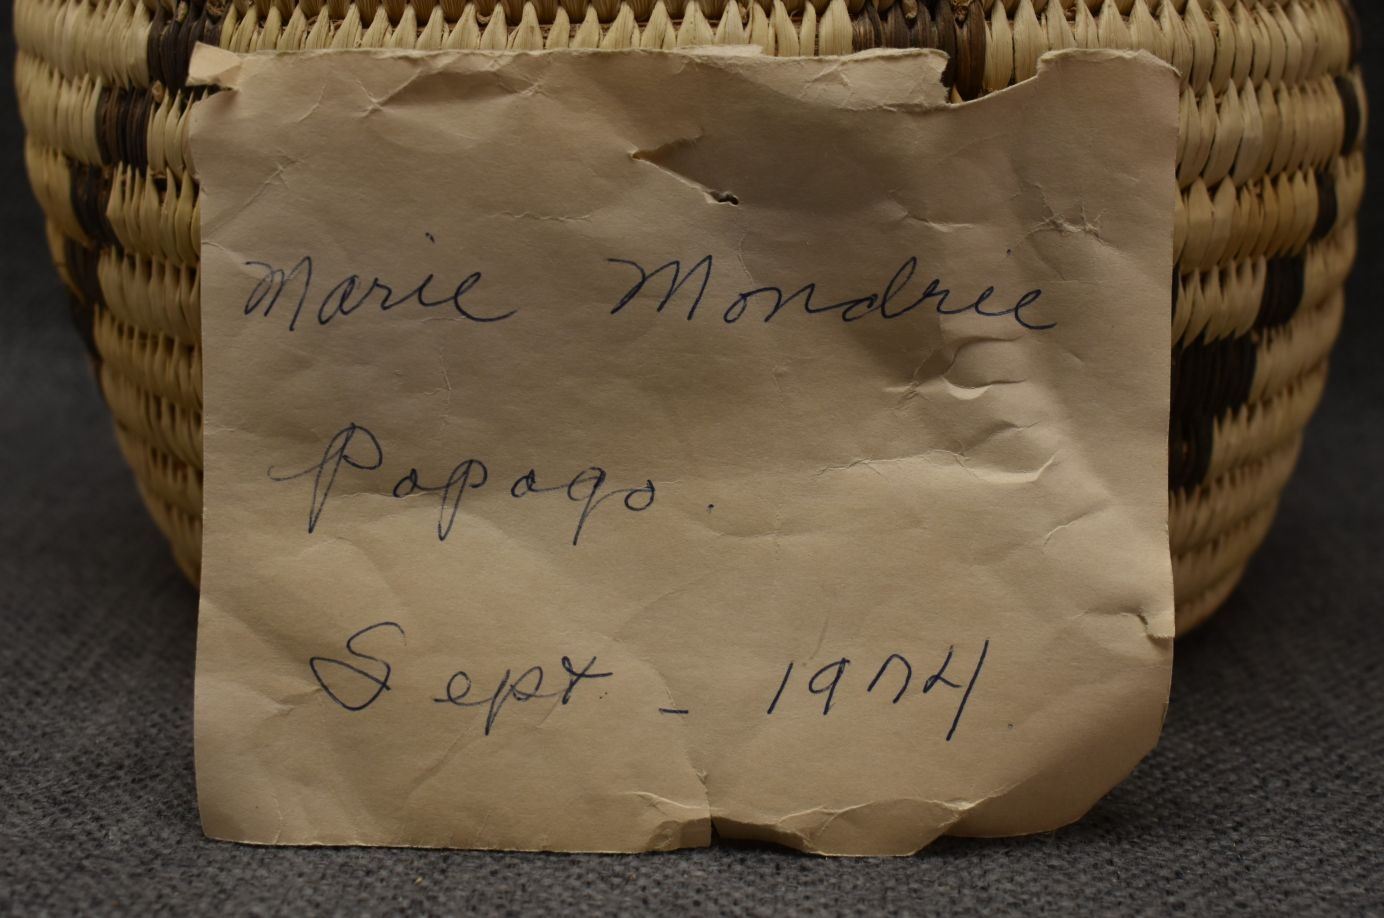 Marie Mondrie
Papago.
Sept - 1974